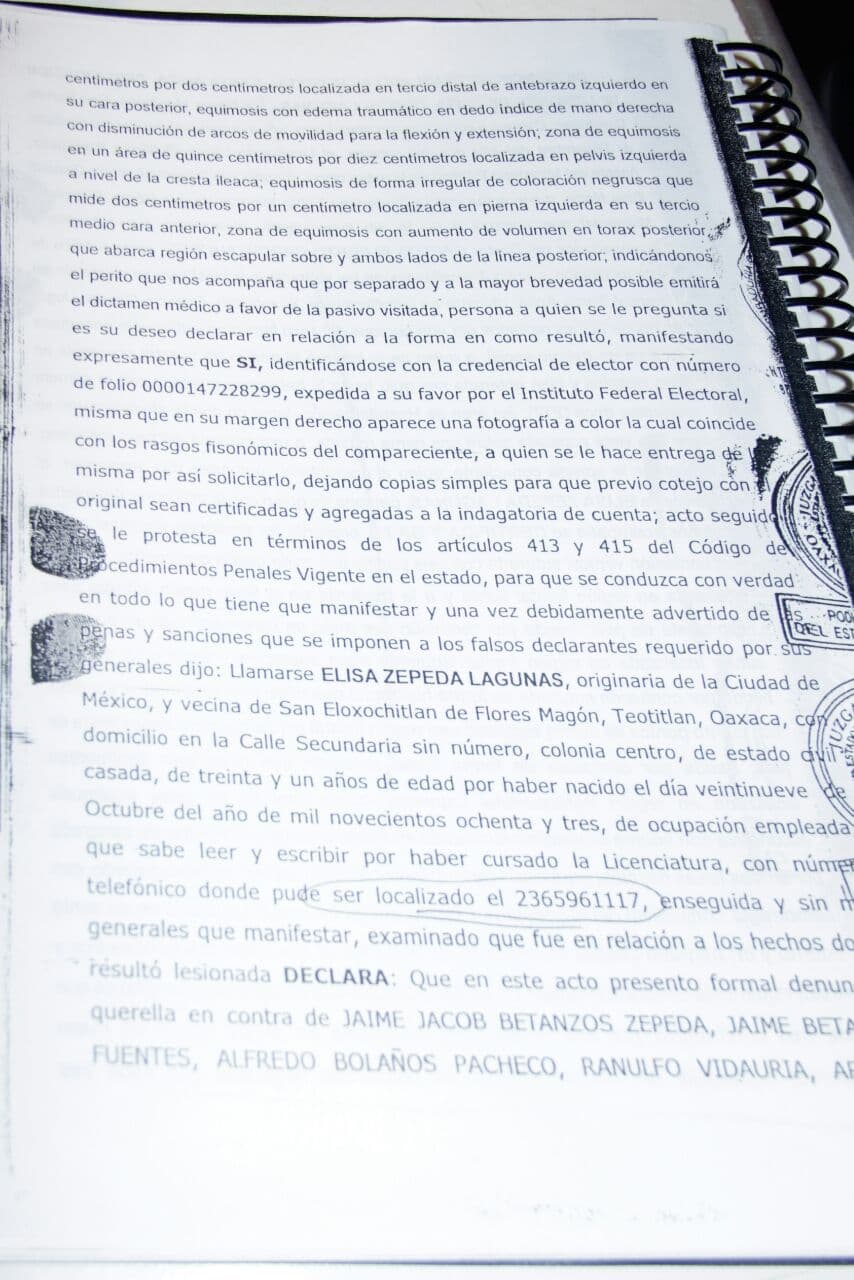 centímetros por dos centímetros localizada en tercio distal de antebrazo izquierdo en
su cara posterior, equimosis con edema traumático en dedo índice de mano derecha
con disminución de arcos de movilidad para la flexión y extensión; zona de equimosis
en un área de quince centímetros por diez centímetros localizada en pelvis izquierda
a nivel de la cresta ileaca; equimosis de forma irregular de coloración negrusca que
mide dos centímetros por un centímetro localizada en pierna izquierda en su tercio
medio cara anterior, zona de equimosis con aumento de volumen en torax posterior,
que abarca región escapular sobre y ambos lados de la línea posterior; indicándonos
el perito que nos acompaña que por separado y a la mayor brevedad posible emitirá
el dictamen médico a favor de la pasivo visitada, persona a quien se le pregunta si
es su deseo declarar en relación a la forma en como resultó, manifestando
expresamente que SI, identificándose con la credencial de elector con número
de folio 0000147228299, expedida a su favor por el Instituto Federal Electoral,
misma que en su margen derecho aparece una fotografía a color la cual coincide
con los rasgos fisonómicos del compareciente, a quien se le hace entrega de
misma por así solicitarlo, dejando copias simples para que previo cotejo con
original sean certificadas y agregadas a la indagatoria de cuenta; acto seguido
se le protesta en términos de los artículos 413 y 415 del Código de
Procedimientos Penales Vigente en el estado, para que se conduzca con verdad
en todo lo que tiene que manifestar y una vez debidamente advertido de las
penas y sanciones que se imponen a los falsos declarantes requerido por sus
generales dijo: Llamarse ELISA ZEPEDA LAGUNAS, originaria de la Ciudad de
México, y vecina de San Eloxochitlan de Flores Magón, Teotitlan, Oaxaca, con
domicilio en la Calle Secundaria sin número, colonia centro, de estado civil
casada, de treinta y un años de edad por haber nacido el día veintinueve de
Octubre del año de mil novecientos ochenta y tres, de ocupación empleada
que sabe leer y escribir por haber cursado la Licenciatura, con númer
telefónico donde pude ser localizado el 2365961117, enseguida y sin m
generales que manifestar, examinado que fue en relación a los hechos do
resultó lesionada DECLARA: Que en este acto presento formal denun
querella en contra de JAIME JACOB BETANZOS ZEPEDA, JAIME BETA
FUENTES, ALFREDO BOLAÑOS PACHECO, RANULFO VIDAURIA, AR
JUZGA
OAXA
PODE
DEL EST
JUZGA
ESTADO